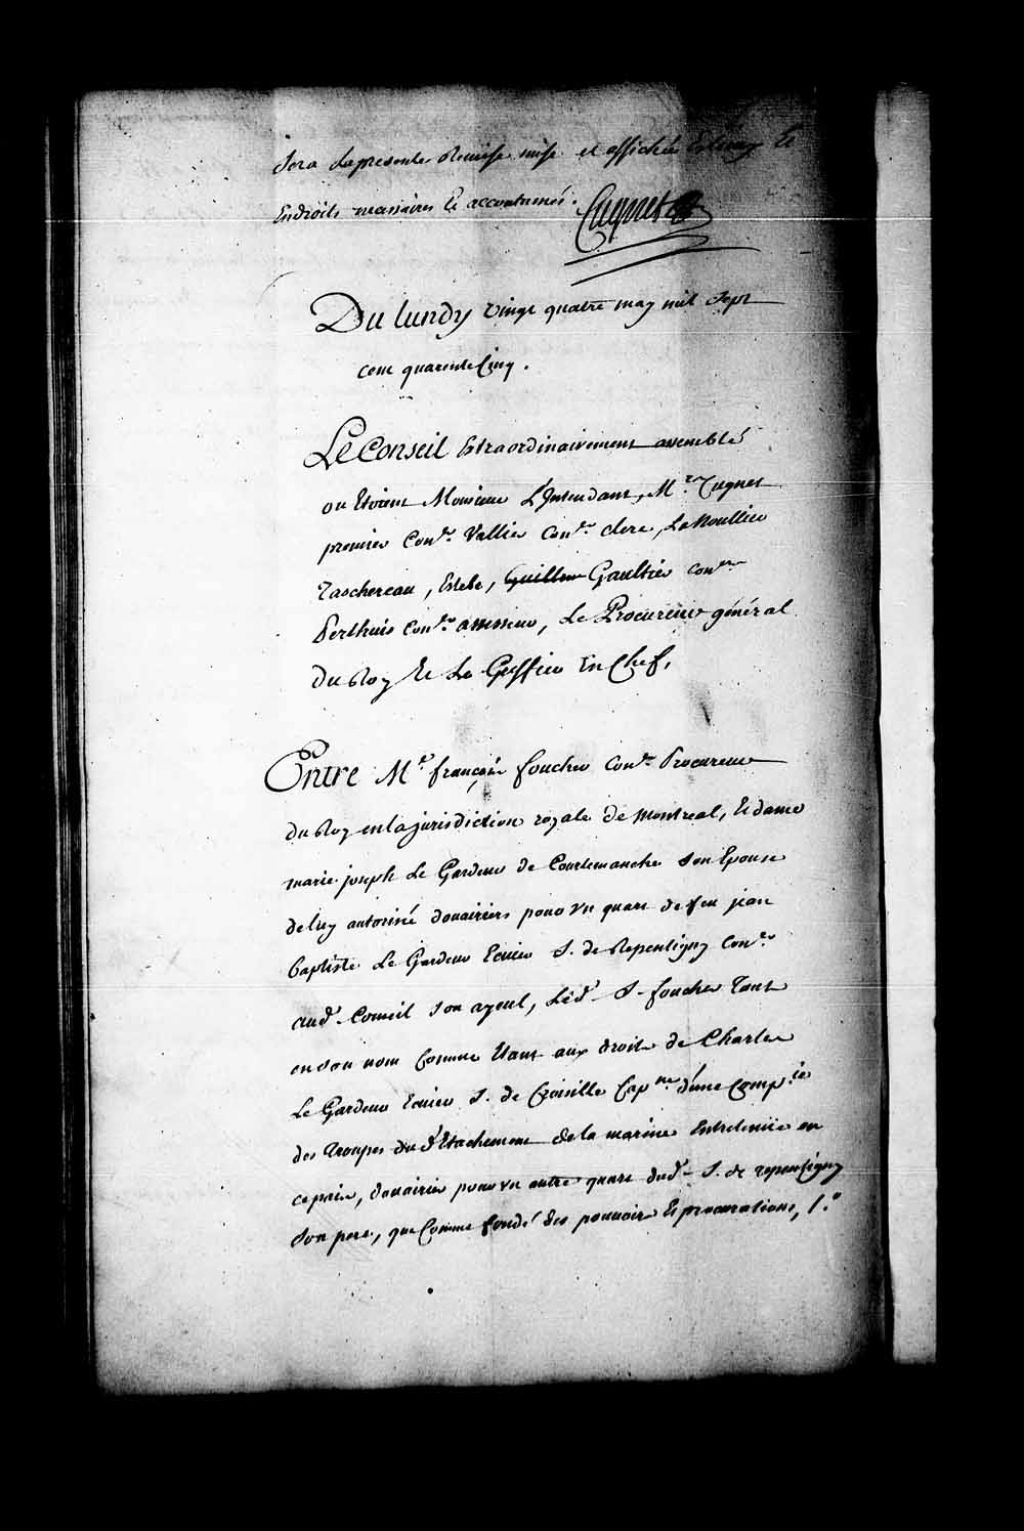 Sera la presente Remise mise et affichée Es lieux Et
Endroits necessaires Et accoutumés.
Cugnet
Du lundy vingt quatre may mil Sept
cent quarente Cinq.
Le Conseil Extraordinairement assemblé
ou Etoient Monsieur L'Intendant, M.re Cugnet
premier Con.er Vallier Con.er clerc, La Noullier
Taschereau, Estebe, Guillim Gaultier con.ers
Perthuis Con.er assesseur, Le Procureur général
du Roy Et Le Greffier En Chef,
Entre M.e françois foucher Con.er Procureur
du Roy en la jurisdiction royale de Montreal, Et dame
marie joseph Le Gardeur de Courtemanche Son Epouse
de luy autorisé douairiere pour vn quart de feu jean
baptiste Le Gardeur Ecuier S. de Repentigny Con.er
aud. Conseil Son ayeul, Led. S. foucher Tant
en son nom Comme Etant aux droits de Charles
Le Gardeur Ecuier S. de Croisille Cap.ne d'une Comp.ie
des Troupes du d'Etachement de la marine Entretenüe en
ce païs, douairier pour vn autre quart dud. S. de repentigny
Son pere, que Comme fondé des pouvoirs Et procurations, 1.°